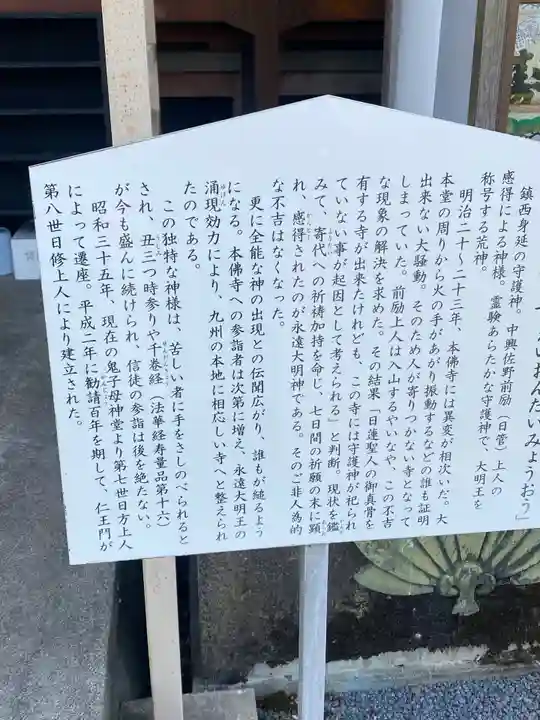 いおんだいみょうおう」
鎮西身延の守護神。中興佐野前励（日菅）上人の
感得による神様。霊験あらたかな守護神で、大明王を
称号する荒神。
明治二十〜二十三年、本佛寺には異変が相次いだ。大
本堂の周りから火の手があがり振動するなどの誰も証明
出来ない大騒動。そのため人が寄りつかない寺となって
しまっていた。前励上人は入山するやいなや、この不吉
な現象の解決を求めた。その結果「日蓮聖人の御真骨を
有する寺が出来たけれども、この寺には守護神が祀られ
ていない事が起因として考えられる」と判断。現状を鑑
みて、寄代への祈祷加持を命じ、七日間の祈願の末に顕
れ、感得されたのが永遠大明神である。そのご非人為的
な不吉はなくなった。
更に全能な神の出現との伝聞広がり、誰もが縋るよう
になる。本佛寺への参詣者は次第に増え、永遠大明王の
涌現効力により、九州の本地に相応しい寺へと整えられ
たのである。
この独特な神様は、苦しい者に手をさしのべられると
され、丑三つ時参りや千巻経（法華経寿量品第十六）
が今も盛んに続けられ、信徒の参詣は後を絶たない。
昭和三十五年、現在の鬼子母神堂より第七世日方上人
によって遷座。平成二年に勧請百年を期して、仁王門が
第八世日修上人により建立された。